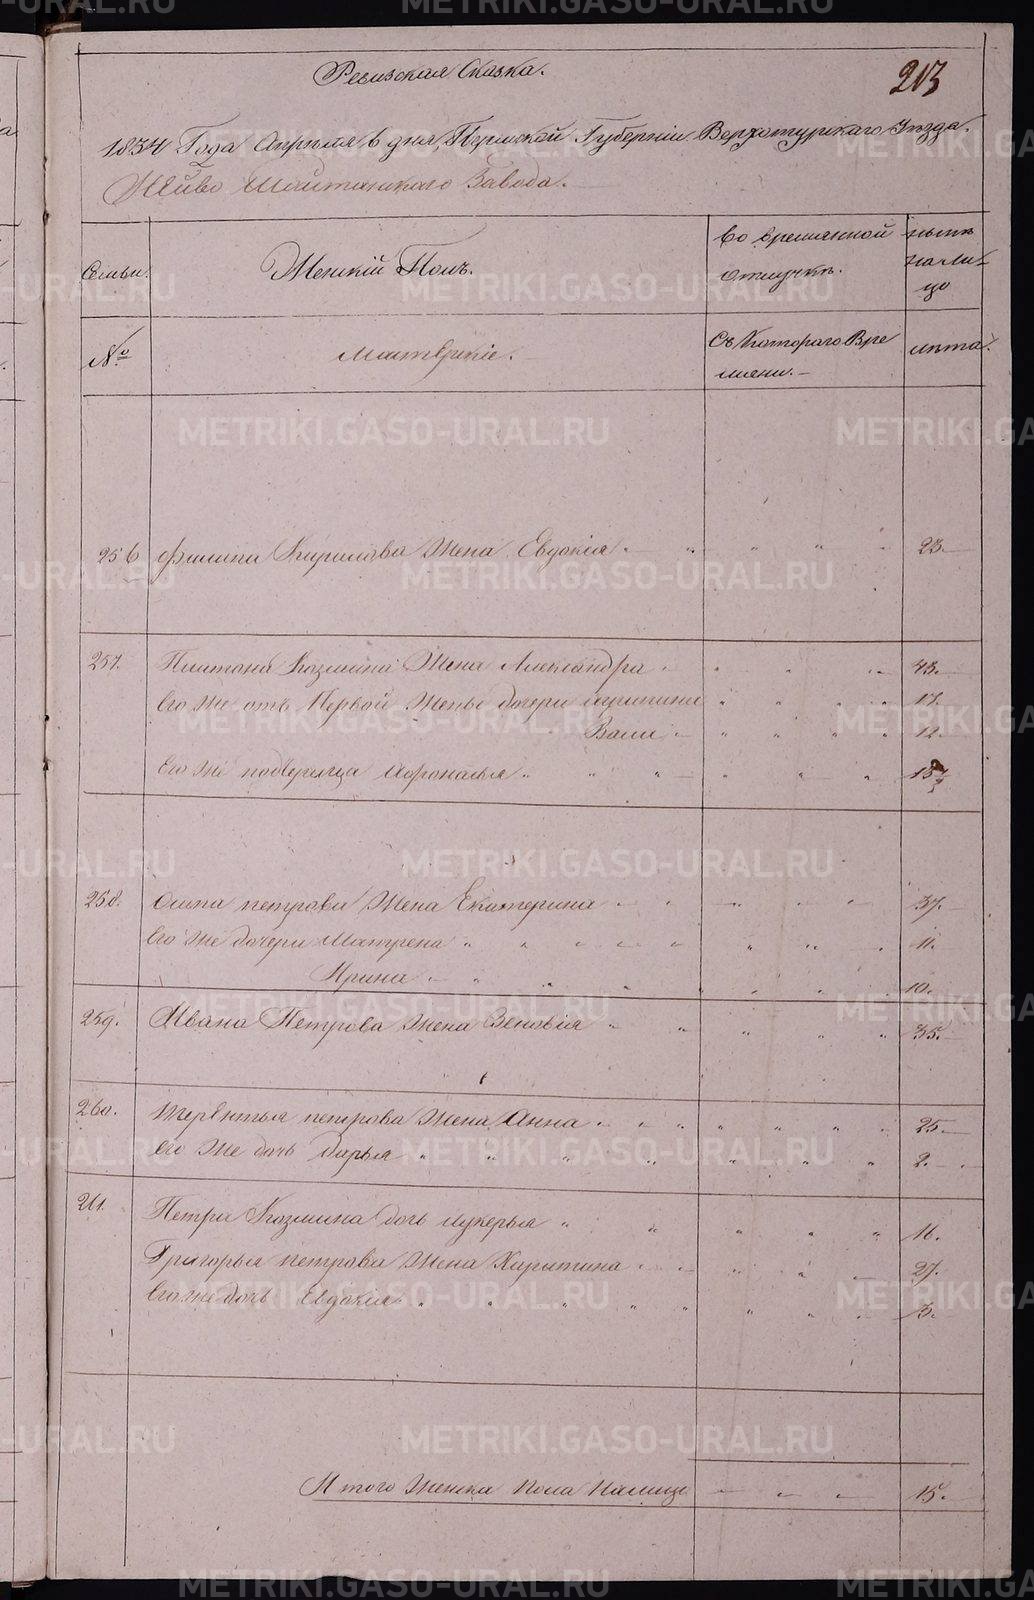 Ревизская Сказка.
213
1834 Года Апреля 6 дня, Пермской Губернии Верхотурскаго Уезда.
Нейво Шайтанскаго Завода.
Семьи.
Женский Полъ.
Во временной отлучкѣ.
ныне на лицо
№
Мастерские.
Съ Котораго Времяни.
лѣта.
256 Филипа Кирилова Жена Евдокія 23.
257. Платона Козмина Жена Александра 43.
Его же отъ Первой Жены дочери 17.
12.
Его же Афонасья
258. Осипа петрова Жена Екатерина 37.
Его же дочери Матрена 11.
Ирина 10.
259. Ивана Петрова жена Зеновія 35.
260. Терентья петрова Жена Анна 25.
его же дочь Дарья 2.
261. Петра Козмина дочь лукерья 16.
Григорья петрова Жена Харитина 27.
Его же дочь Евдокія 3.
Итого Женска Пола Налицо 15.
METRIKI.GASO-URAL.RU